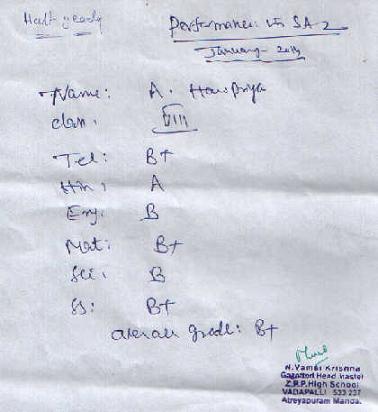 Half yearly
Performance in SA-2
January-2019
Name: A. Haripriya
class: VIII
Tel: B+
Hin: A
Eng: B
Mat: B+
Sci: B
SS: B+
overall grade: B+
N. Vamsi Krishna
Gazetted Head Master
Z.P.P.High School
VADAPALLI 533 237
Atreyapuram Manda.